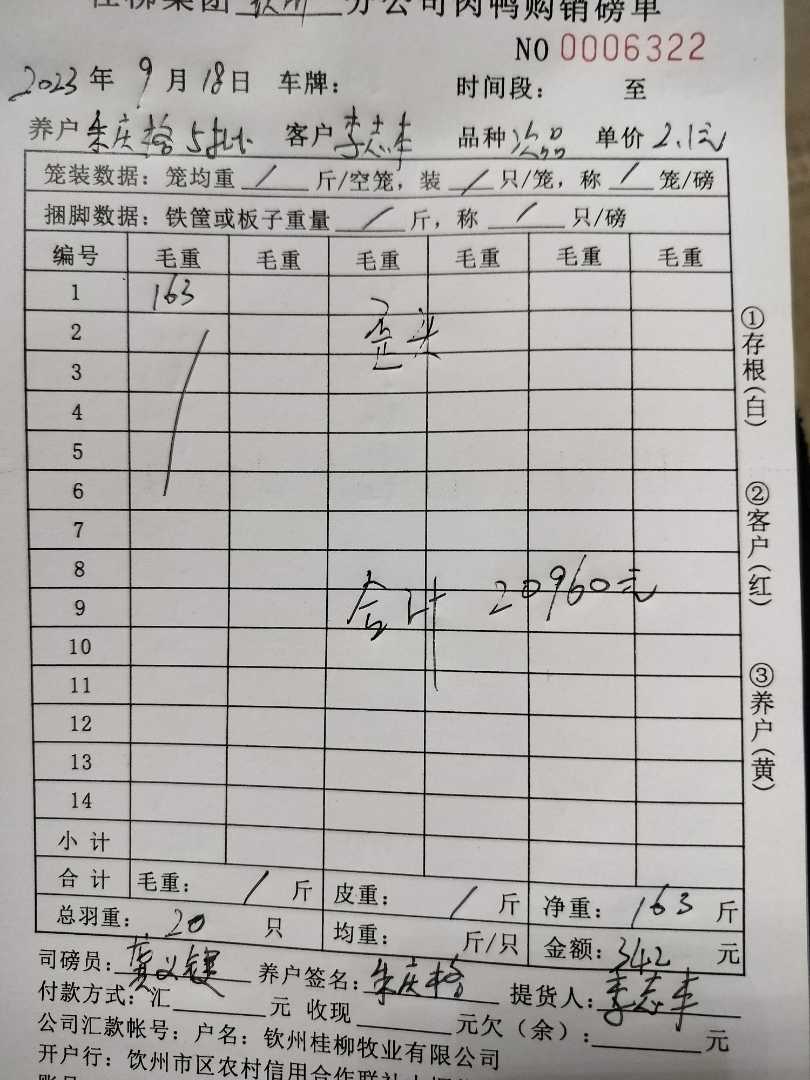 桂柳集团 钦州 分公司肉鸭购销磅单
NO 0006322
2023 年 9 月 18 日 车牌： 时间段： 至
养户 朱庆格 5批 客户 李志丰 品种 次品 单价 2.1元
笼装数据：笼均重 / 斤/空笼，装 / 只/笼，称 / 笼/磅
捆脚数据：铁筐或板子重量 / 斤，称 / 只/磅
编号 毛重 毛重 毛重 毛重 毛重 毛重
1 163
2 歪头
3
4
5
6
7
8
9 合计 20960元
10
11
12
13
14
小计
合计 毛重： / 斤 皮重： / 斤 净重： 163 斤
总羽重： 20 只 均重： 斤/只 金额： 342 元
司磅员： 养户签名： 朱庆格 提货人： 李志丰
付款方式：汇 元 收现 元欠（余）： 元
公司汇款帐号：户名：钦州桂柳牧业有限公司
开户行：钦州市区农村信用合作联社
①存根（白）
②客户（红）
③养户（黄）